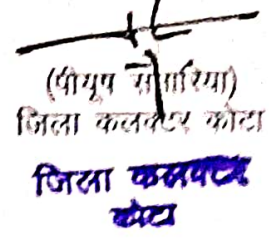 (पीयूष समारिया)
जिला कलक्टर कोटा
जिला कलक्टर
कोटा